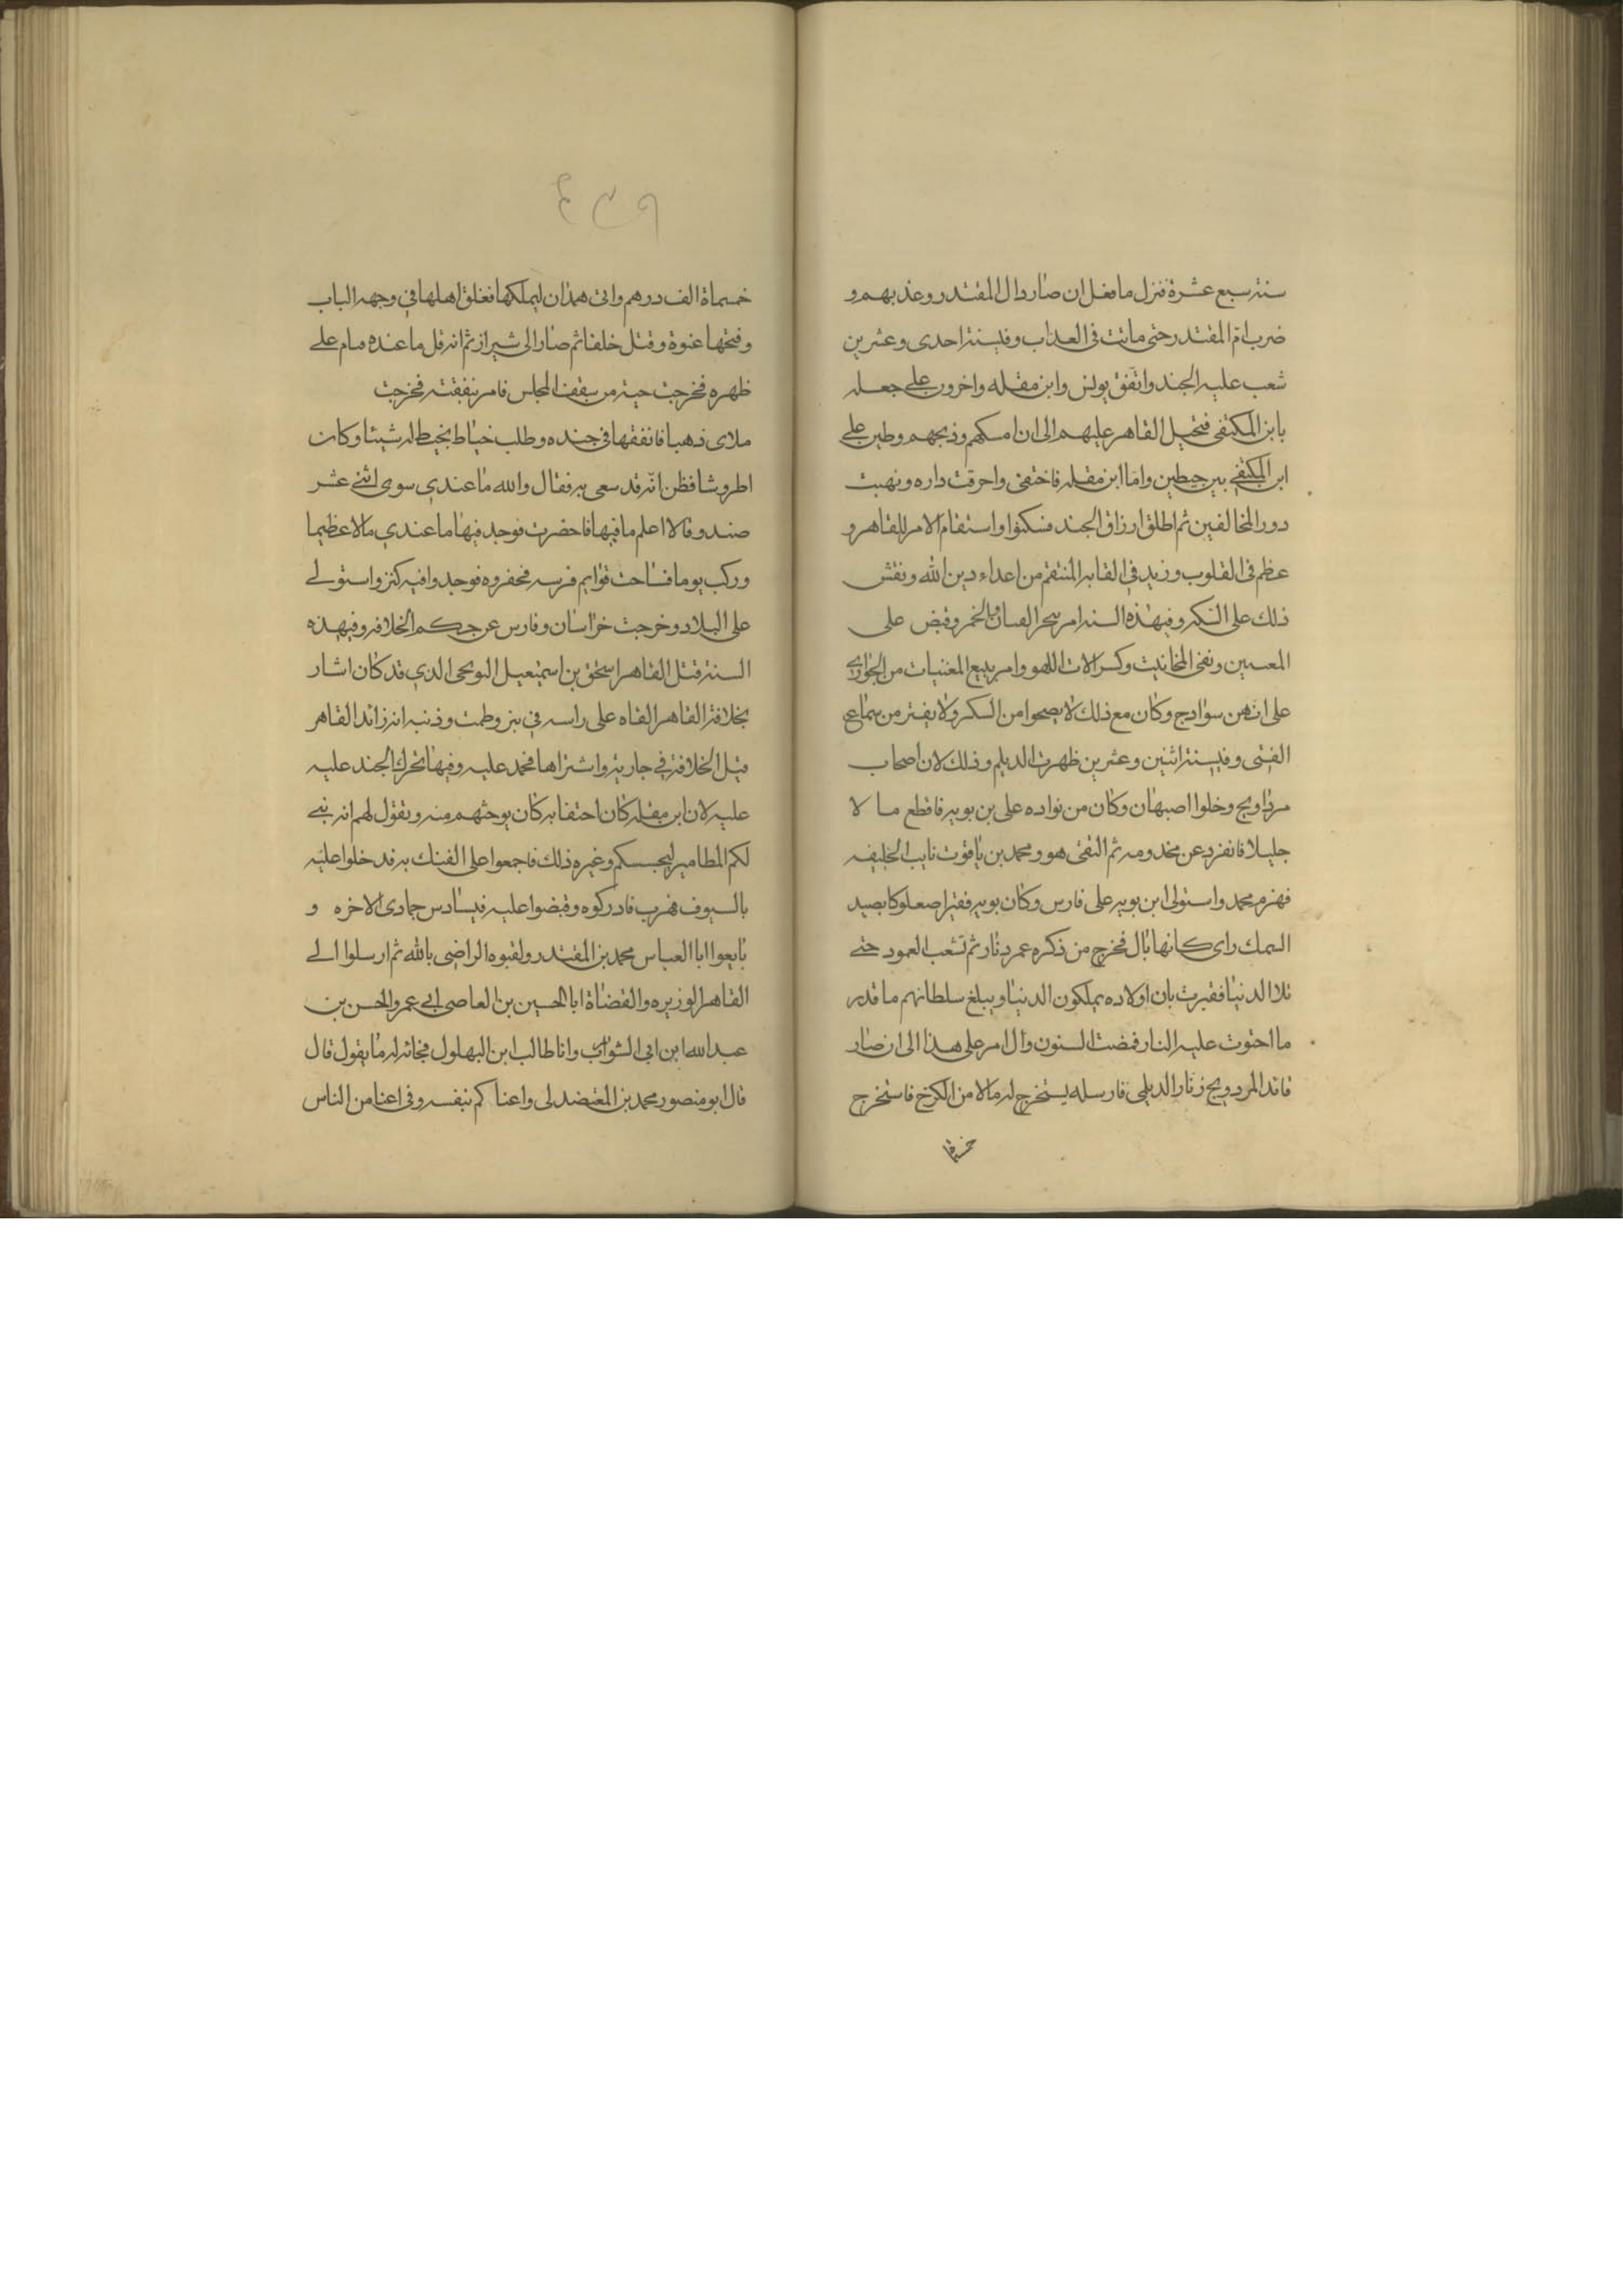 سنة سبع عشرة فنزل ما فعل ان صادر ال المقتدر وعذبهم و
ضرب ام المقتدر حتى ماتت في العذاب وفي سنة احدى وعشرين
شعب عليه الجند واتفق يونس وابن مقله واخرون على جعله
بابن المكتفى فتحيل القاهر عليهم الى ان امسكهم وذبحهم وطين على
ابن المكتفي بين حيطين واما ابن مقله فاختفى واحرقت داره ونهبت
دور المخالفين ثم اطلق ارزاق الجند فسكنوا واستقام الامر للقاهر و
عظم في القلوب وزيد في القابه المنتقم من اعداء دين الله ونقش
ذلك على السكه وفي هذه السنه امر بتحر القسان والخمر وقبض على
المغنيين ونفى المخانيث وكسر الات اللهو وامر ببيع المغنيات من الجواري
على انهن سوادج وكان مع ذلك لا يصحوا من السكر ولا يفتر من سماع
الفتى وفي سنة اثنين وعشرين ظهرت الديلم وذلك لان اصحاب
مرداويج دخلوا اصبهان وكان من قواده على بن بويه فاقطع مالا
جليلا فانفرد عن مخدومه ثم التقى هو ومحمد بن ياقوت نايب الخليفه
فهزم محمد واستولى ابن بويه على فارس وكان بويه فقيرا صعلوكا يصيد
السمك راى كانها بال فخرج من ذكره عمود نار ثم تشعب العمود حتى
تلا الدنيا فعبرت بان اولاده يملكون الدنيا ويبلغ سلطانهم ما قدر
ما احتوت عليه النار فمضت السنون وال امر على هذا الى ان صار
قائد المردويج زنار الديلمى فارسله يستخرج له مالا من الكرخ فاستخرج
خمسماة
٤٣٩
خمسماة الف درهم واتى همذان ليملكها فغلق اهلها في وجهه الباب
وفتحها عنوة وقتل خلقا ثم صار الى شيراز ثم انه قل ما عنده فنام على
ظهره فخرجت حية من سقف المجلس فامر بنفقته فخرجت
ملاى ذهبا فانفقها في جنده وطلب خياط يخيط له شيئا وكان
اطروشا فظن انه قد سعى به فقال والله ما عندي سوى اثنى عشر
صندوقا لا اعلم ما فيها فاحضرت فوجد فيها ما عندي مالا عظيما
وركب يوما فساحت قوايم فرسه فحفروه فوجدوا فيه كنز واستولى
على البلاد وخرجت خراسان وفارس عن حكم الخلافه وفي هذه
السنة قتل القاهر اسحق بن اسمعيل النوبختى الذي قد كان اشار
بخلافة القاهر القاه على راسه في بئر وطمت وذنبه انه زائد القاهر
قبل الخلافة في جارية واشتراها فحمد عليه وفيها تحرك الجند عليه
عليه لان ابن مقله كان احتفا به كان يوحشهم منه ويقول لهم انه بنى
لكم المطامير ليحبسكم وغيره ذلك فاجمعوا على الفتك به فدخلوا عليه
بالسيوف فهرب فادركوه وقبضوا عليه في سادس جمادى الاخره و
بايعوا ابا العباس محمد بن المقتدر ولقبوه الراضى بالله ثم ارسلوا الى
القاهر الوزيره والقضاة ابا الحسين بن العاصى ابي عمر والحسن بن
عبد الله ابن ابى الشوارب وانا طالب ابن البهلول فجائه له ما يقول قال
قال ابو منصور محمد بن المعتضد لى واعناكم بنفسه وفى اعنا من الناس